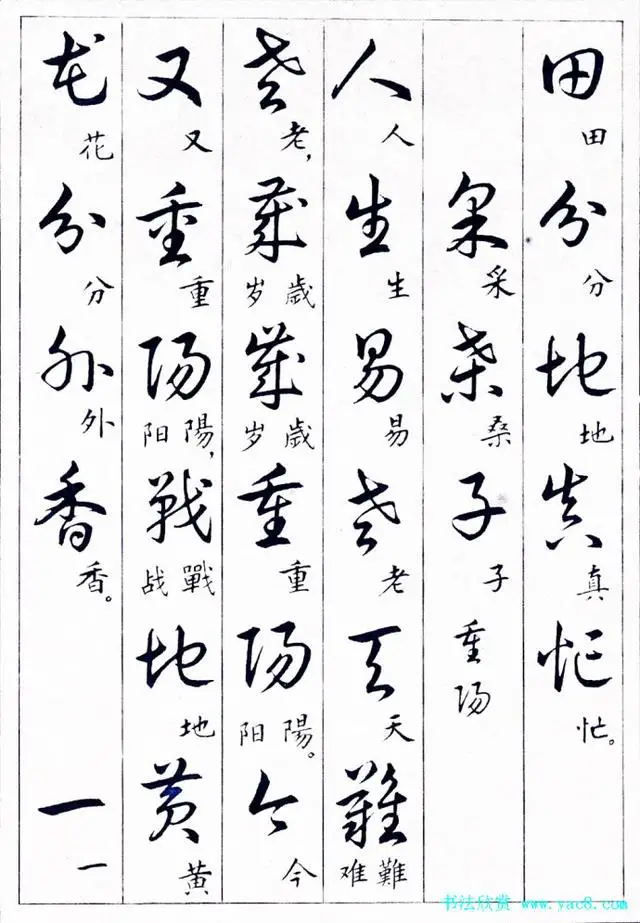 田分地真忙
田分地真忙。
采桑子 重陽
采桑子
人生易老天難
人生易老天难難
老歲歲重陽今
老，岁歲岁歲重阳陽。今
又重陽戰地黄
又重阳陽，战戰地黄
花分外香 一
花分外香。一
书法欣赏 www.yac8.com